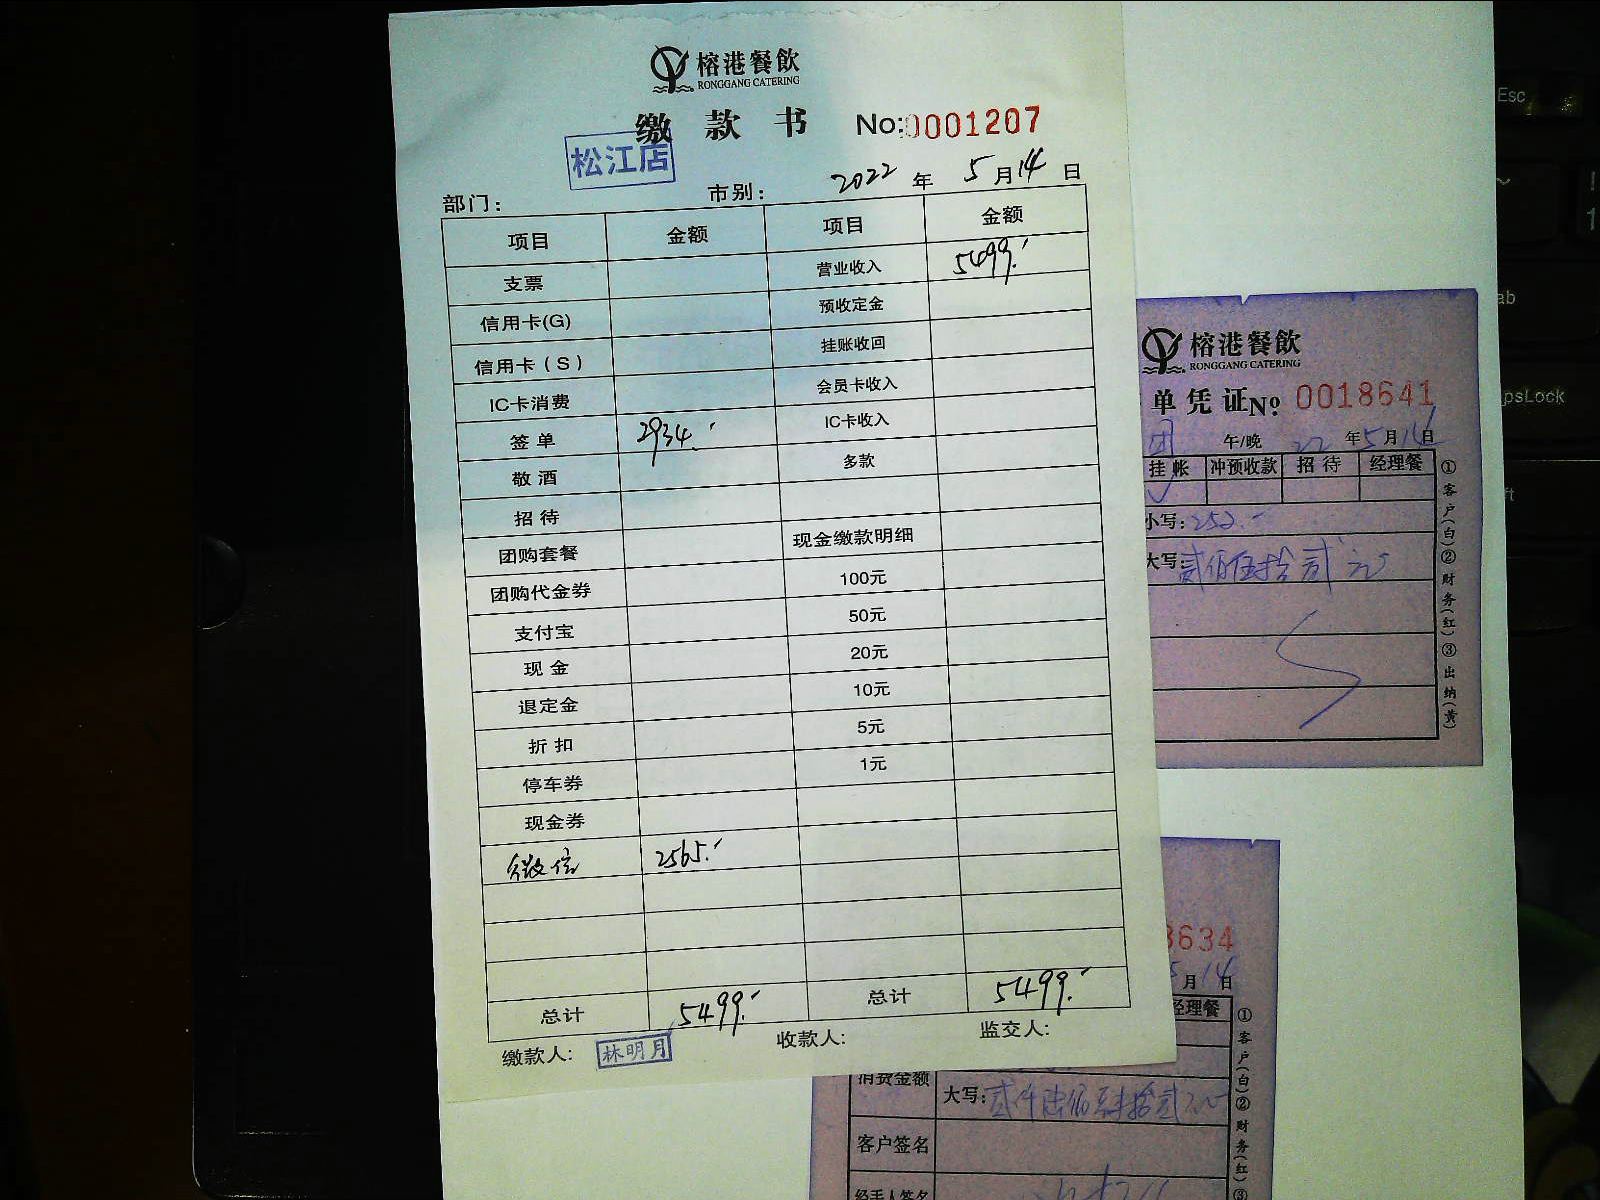 榕港餐飲
RONGGANG CATERING
缴款书 No:0001207
松江店
部门: 市别: 2022年5月14日
项目 金额 项目 金额
支票 营业收入 5499.
信用卡(G) 预收定金
信用卡(S) 挂账收回
IC卡消费 会员卡收入
签单 2934. IC卡收入
敬酒 多款
招待
团购套餐 现金缴款明细
团购代金券 100元
支付宝 50元
现金 20元
退定金 10元
折扣 5元
停车券 1元
现金券
微信 2565.
总计 5499. 总计 5499.
缴款人: 林明月 收款人: 监交人:
榕港餐飲
RONGGANG CATERING
单凭证No 0018641
午/晚 22年5月14日
挂帐 冲预收款 招待 经理餐
小写: 252.-
大写: 贰佰伍拾贰元
①客户(白)②财务(红)③出纳(黄)
3634
月14日
经理餐
消费金额 大写:
客户签名
经手人签名
①客户(白)②财务(红)③
Esc
~
!
1
ab
psLock
ft